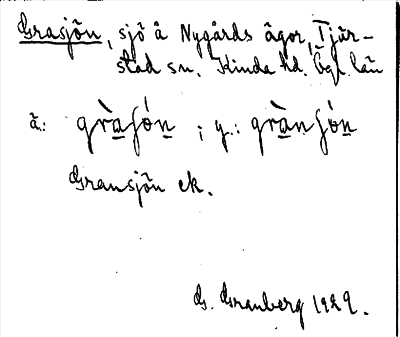 Grasjön, sjö å Nygårds ägor, Tjär-
stad sn. Kinda hd. Ögl. län
ä.: gràsǿn ; y.: grànsǿn
Gransjön ek.
G. Granberg 1929.